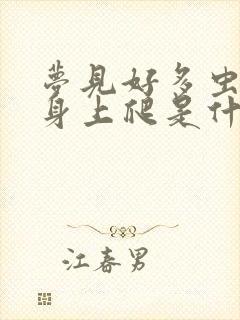 夢見好多虫
身上爬是什
江春男